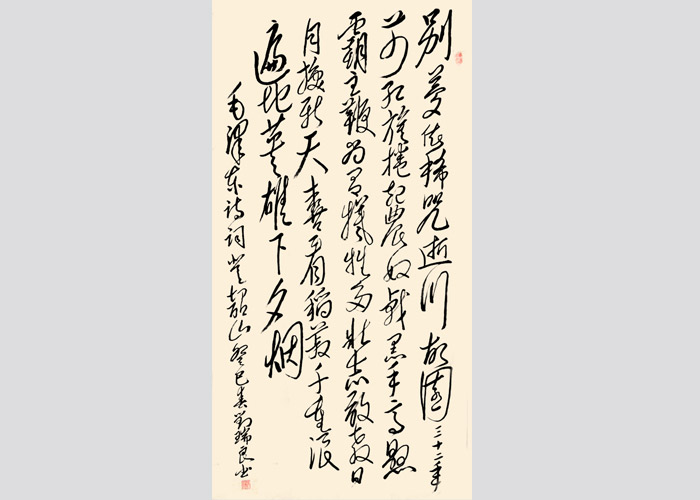 别夢依稀咒逝川故園三十二年
前红旗捲起農奴戟黑手高悬
霸主鞭为有犧牲多壮志敢教日
月換新天喜看稻菽千重浪
遍地英雄下夕烟
毛澤东诗词登韶山癸巳春劉瑞良书